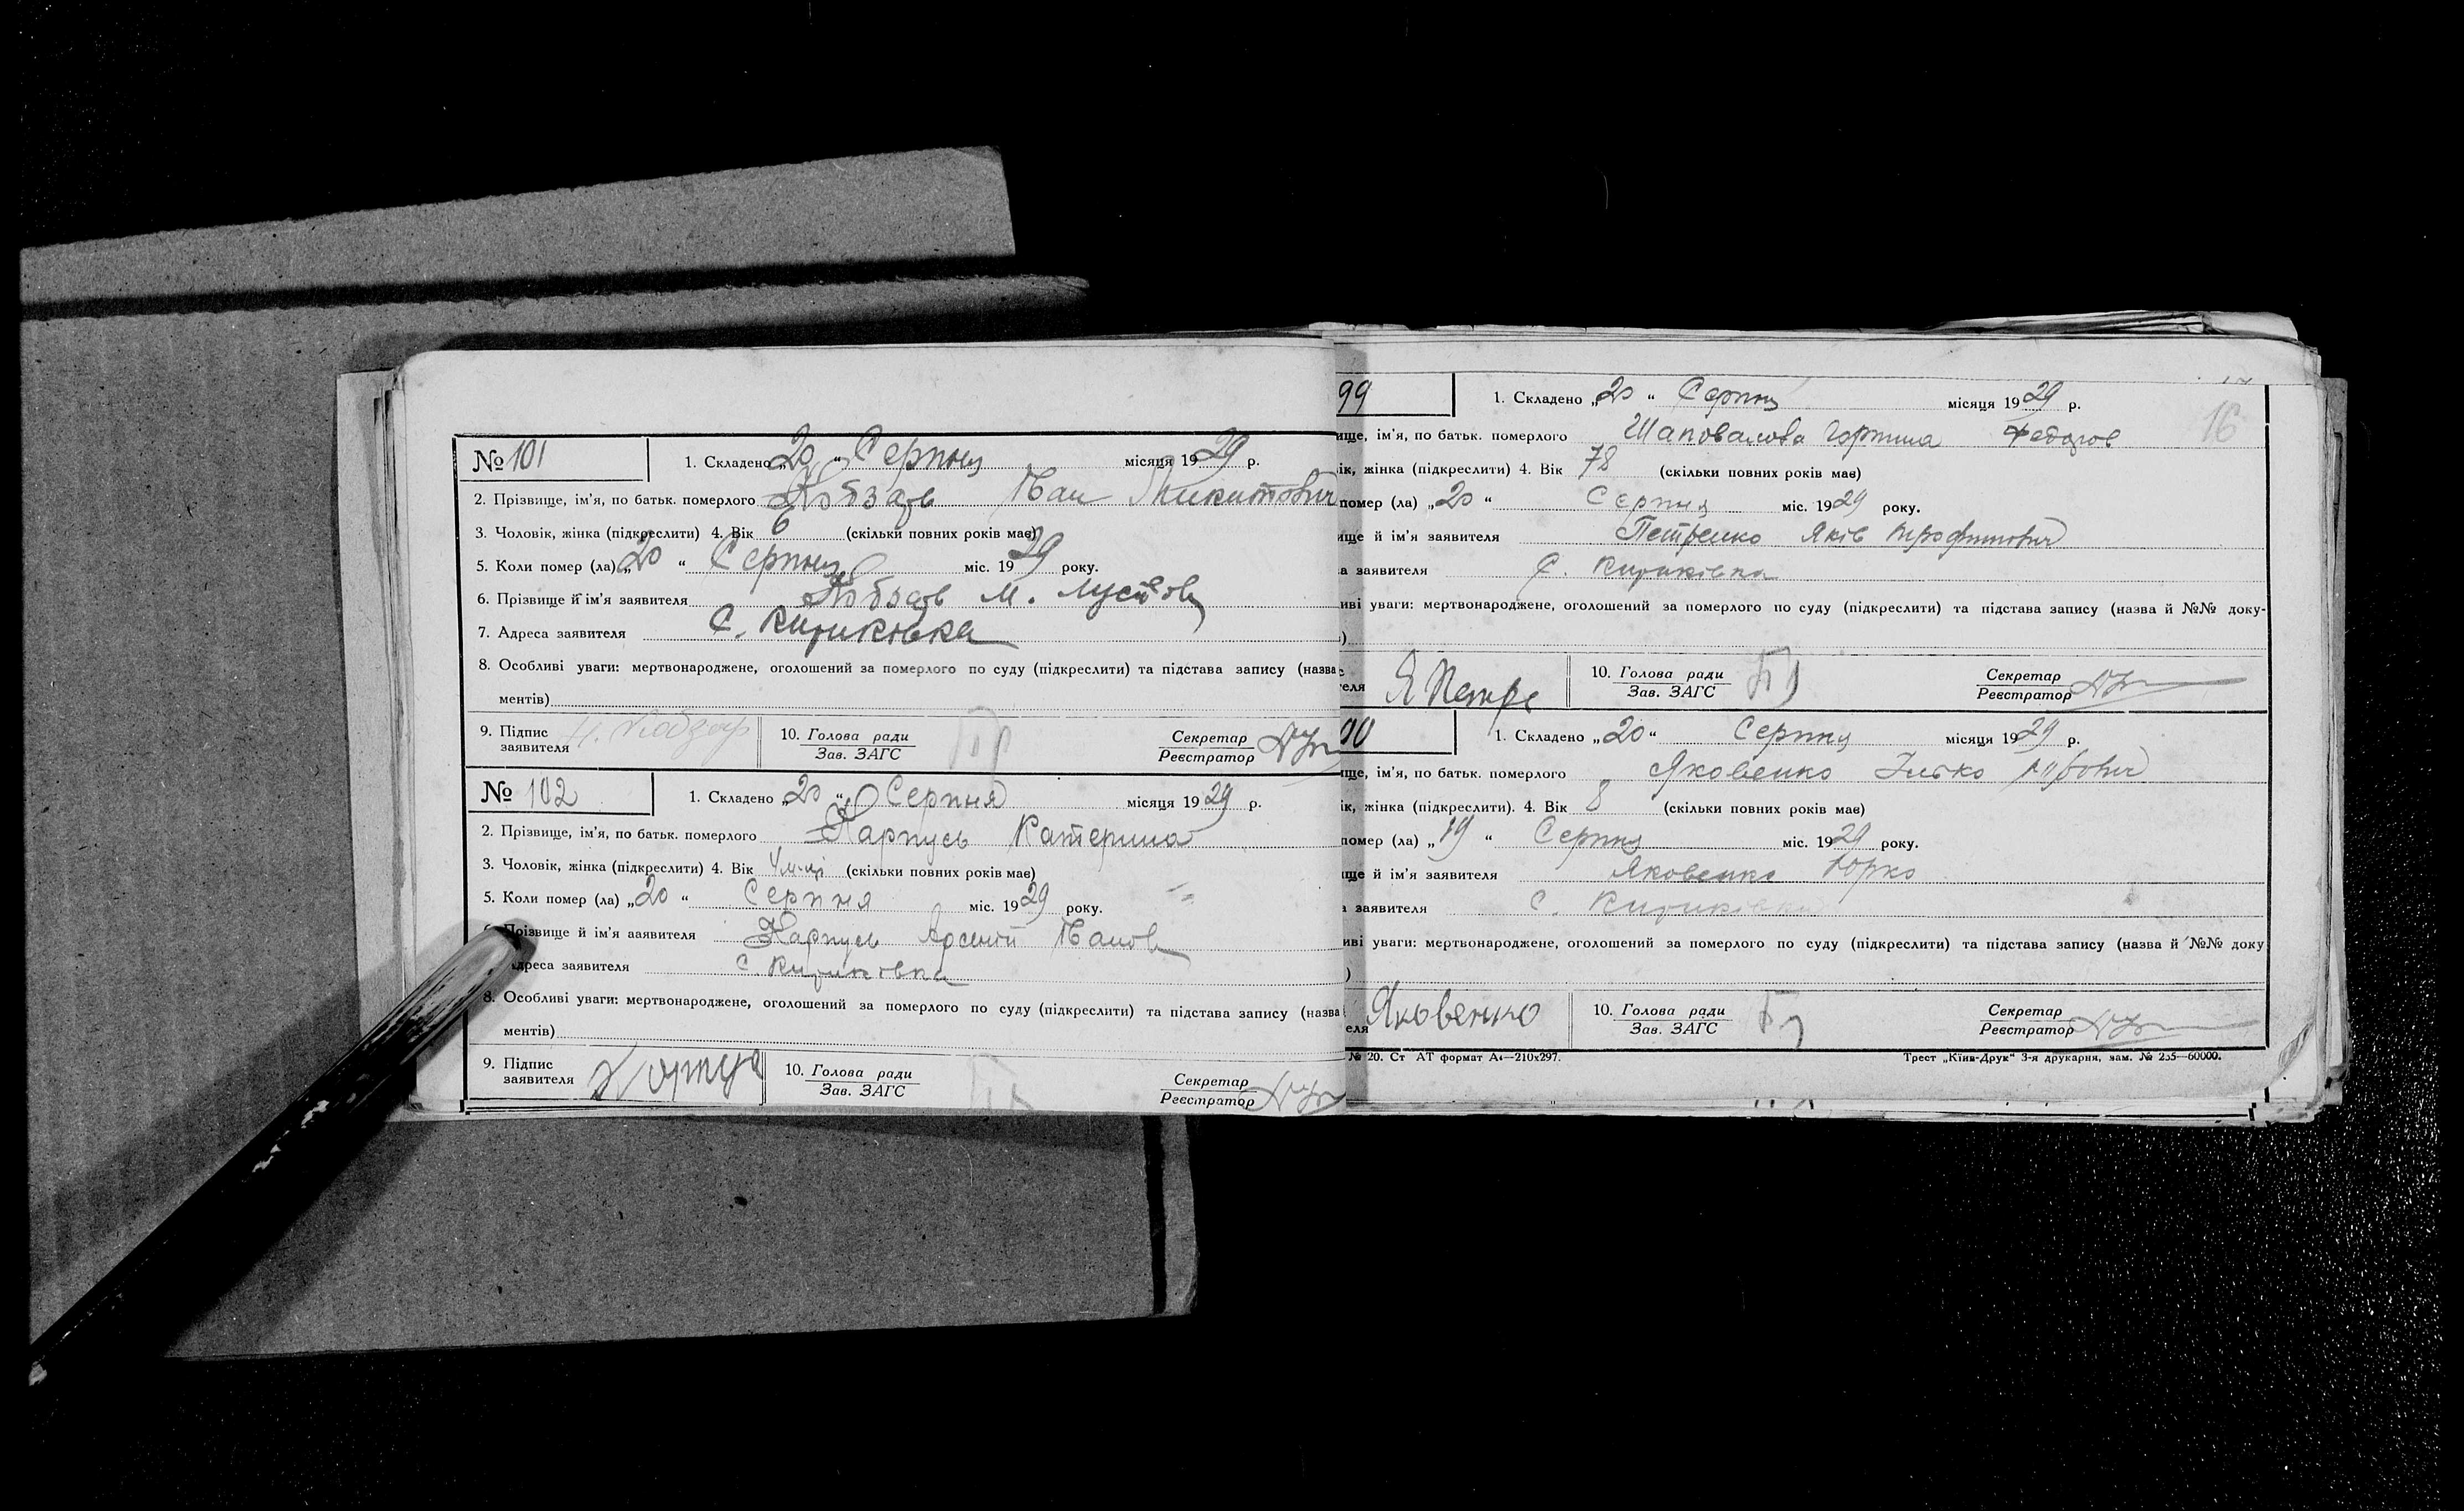 № 101
1. Складено „20“ Серпня місяця 1929 р.
2. Прізвище, ім'я, по батьк. померлого Кобзар Пан Микитович
3. Чоловік, жінка (підкреслити) 4. Вік 6 (скільки повних років має)
5. Коли помер (ла) „20“ Серпня міс. 1929 року.
6. Прізвище й ім'я заявителя Кобзар М.
7. Адреса заявителя С. Кириківка
8. Особливі уваги: мертвонароджене, оголошений за померлого по суду (підкреслити) та підстава запису (назва
ментів)
9. Підпис заявителя Н. Кобзар 10. Голова ради Зав. ЗАГС Секретар Реєстратор
№ 102
1. Складено „20“ Серпня місяця 1929 р.
2. Прізвище, ім'я, по батьк. померлого Карпусь Катерина
3. Чоловік, жінка (підкреслити) 4. Вік 4 м-ці (скільки повних років має)
5. Коли помер (ла) „20“ Серпня міс. 1929 року.
Прізвище й ім'я заявителя Карпусь Арсеній Панов
дреса заявителя с. Кириківка
8. Особливі уваги: мертвонароджене, оголошений за померлого по суду (підкреслити) та підстава запису (назва
ментів)
9. Підпис заявителя 10. Голова ради Зав. ЗАГС Секретар Реєстратор
99
1. Складено „20“ Серпня місяця 1929 р.
16
ище, ім'я, по батьк. померлого Шаповалова Горпина Федоров
ік, жінка (підкреслити) 4. Вік 78 (скільки повних років має)
помер (ла) „20“ Серпня міс. 1929 року.
ище й ім'я заявителя Петренко Яків Трофимович
а заявителя С. Кириківка
иві уваги: мертвонароджене, оголошений за померлого по суду (підкреслити) та підстава запису (назва й №№ доку-
)
теля Я Петре 10. Голова ради Зав. ЗАГС Секретар Реєстратор
00
1. Складено „20“ Серпня місяця 1929 р.
ище, ім'я, по батьк. померлого Яковенко Ілько
ік, жінка (підкреслити). 4. Вік 8 (скільки повних років має)
помер (ла) „19“ Серпня міс. 1929 року.
ище й ім'я заявителя Яковенко Юрко
а заявителя С. Кириківка
иві уваги: мертвонароджене, оголошений за померлого по суду (підкреслити) та підстава запису (назва й №№ доку
)
еля Яковенко 10. Голова ради Зав. ЗАГС Секретар Реєстратор
№ 20. Ст АТ формат А4—210х297. Трест „Київ-Друк“ 3-я друкарня, зам. № 255—60000.